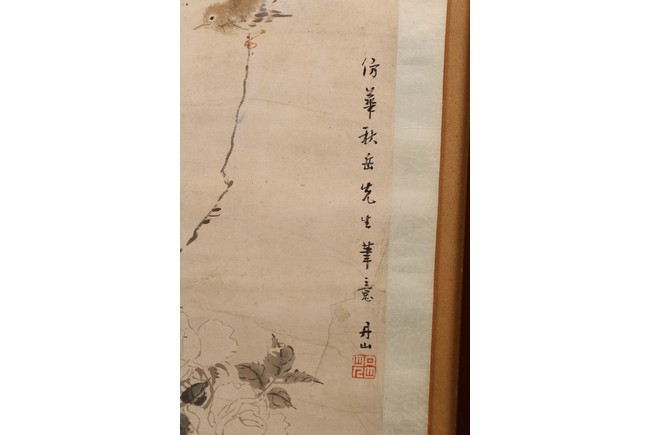 仿華秋岳先生筆意 丹山